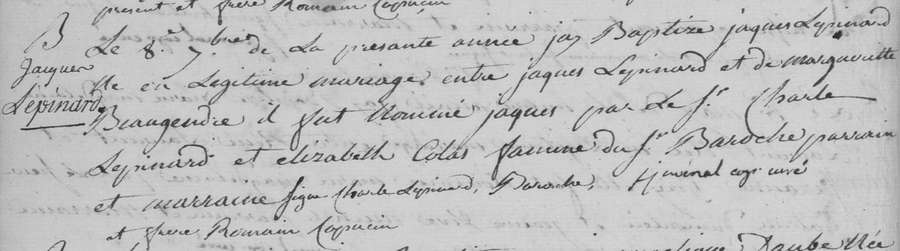 present et frere Romain Capucin
B
Jacques
Lépinard
Le 8.e 7.bre de La presante année jay Baptize jaques Lepinard
Ne en Legitime mariage entre jaques Lepinard et de margueritte
Beaugendre il fut Nommé jaques par Le Sr. Charle
Lepinard et elizabeth Colas famme du Sr. Baroche parrain
et marraine signe Charle Lepinard, Baroche, curé
et frere Romain Capucin